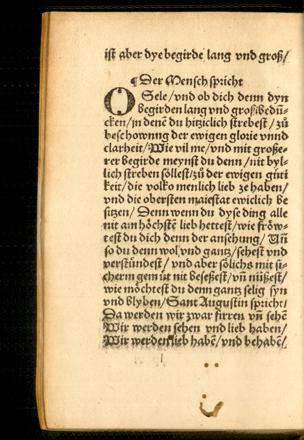 ist aber dye begirde lang vnd groß/
¶Der Mensch spricht
O Sele/vnd ob dich denn dyn
begirden lang vnd groß bedũ-
cken/in denẽ du hitziclich strebest/zů
beschownng der ewigen glorie vnnd
clarheit/Wie vil me/vnd mit große-
rer begirde meynst du denn/nit byl-
lich streben söllest/zů der ewigen güti
keit/die volkomenlich lieb ze haben/
vnd die obersten maiestat ewiclich be
sitzen/Denn wenn du dyse ding alle
nit am höchstẽ lieb hettest/wie fröw-
test du dich denn der ansehung/Uñ
so du denn wol vnd gantz/sehest vnd
verstündest/vnd aber sölichs mit si-
cherm gemüt nit beseßest/vñ nüßest/
wie möchtest du denn gantz selig syn
vnd blyben/Sant Augustin spricht/
Da werden wir zwar firren vñ sehẽ
Wir werden sehen vnd lieb haben/
Wir werden lieb habẽ/vnd behabẽ/